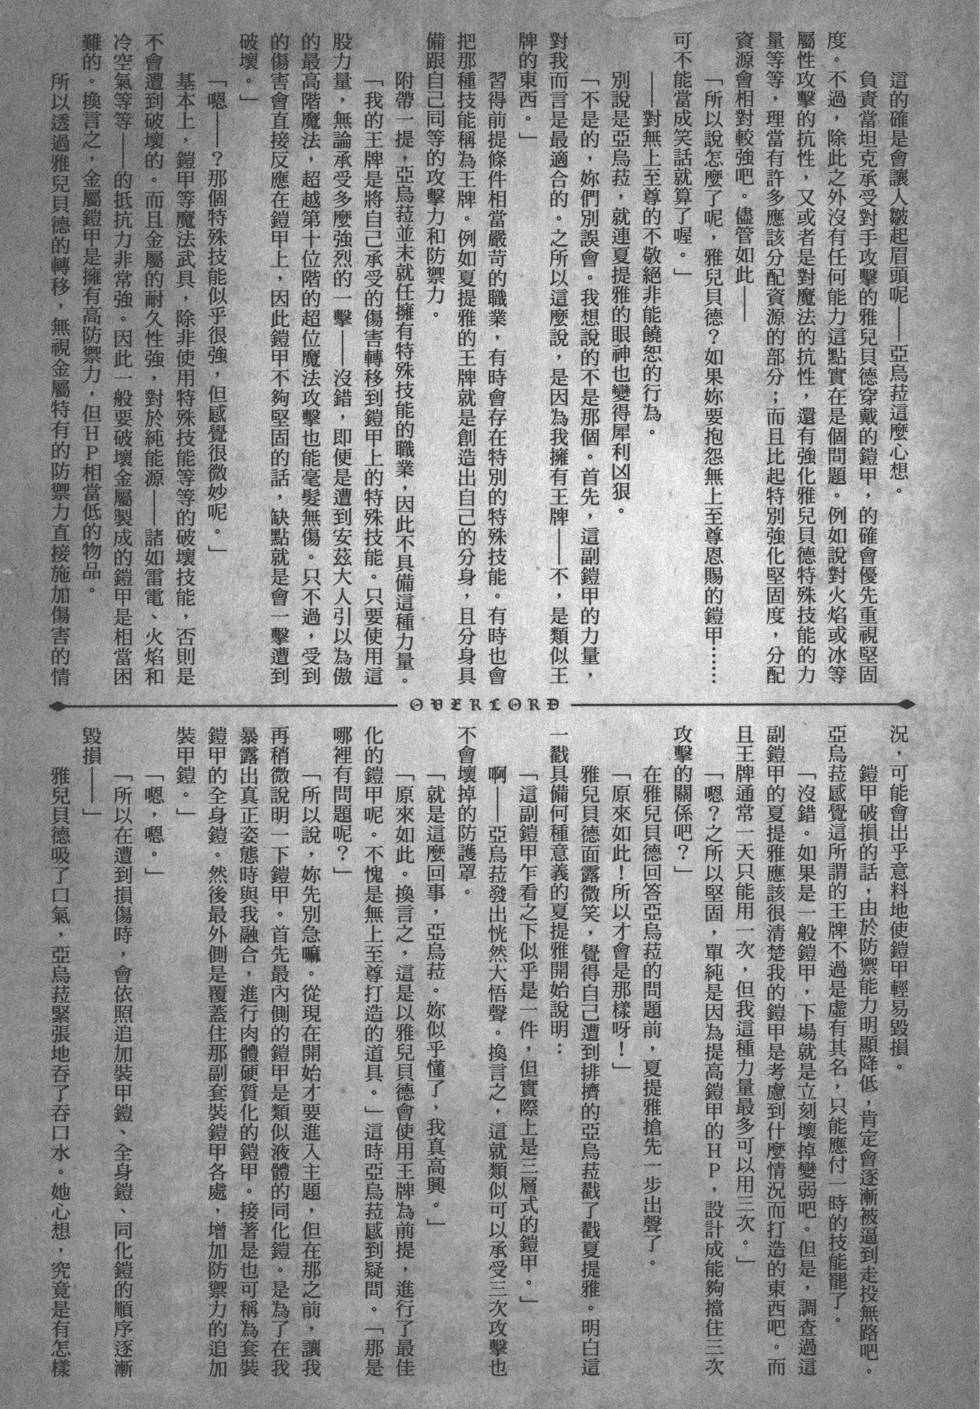 這的確是會讓人皺起眉頭呢——亞烏菈這麼心想。
負責當坦克承受對手攻擊的雅兒貝德穿戴的鎧甲，的確會優先重視堅固
度。不過，除此之外沒有任何能力這點實在是個問題。例如說對火焰或冰等
屬性攻擊的抗性，又或者是對魔法的抗性，還有強化雅兒貝德特殊技能的力
量等等，理當有許多應該分配資源的部分；而且比起特別強化堅固度，分配
資源會相對較強吧。儘管如此——
「所以說怎麼了呢，雅兒貝德？如果妳要抱怨無上至尊恩賜的鎧甲……
可不能當成笑話就算了喔。」
——對無上至尊的不敬絕非能饒恕的行為。
別說是亞烏菈，就連夏提雅的眼神也變得犀利凶狠。
「不是的，妳們別誤會。我想說的不是那個。首先，這副鎧甲的力量，
對我而言是最適合的。之所以這麼說，是因為我擁有王牌——不，是類似王
牌的東西。」
習得前提條件相當嚴苛的職業，有時會存在特別的特殊技能。有時也會
把那種技能稱為王牌。例如夏提雅的王牌就是創造出自己的分身，且分身具
備跟自己同等的攻擊力和防禦力。
附帶一提，亞烏菈並未就任擁有特殊技能的職業，因此不具備這種力量。
「我的王牌是將自己承受的傷害轉移到鎧甲上的特殊技能。只要使用這
股力量，無論承受多麼強烈的一擊——沒錯，即便是遭到安茲大人引以為傲
的最高階魔法，超越第十位階的超位魔法攻擊也能毫髮無傷。只不過，受到
的傷害會直接反應在鎧甲上，因此鎧甲不夠堅固的話，缺點就是會一擊遭到
破壞。」
「嗯——？那個特殊技能似乎很強，但感覺很微妙呢。」
基本上，鎧甲等魔法武具，除非使用特殊技能等等的破壞技能，否則是
不會遭到破壞的。而且金屬的耐久性強，對於純能源——諸如雷電、火焰和
冷空氣等等——的抵抗力非常強。因此一般要破壞金屬製成的鎧甲是相當困
難的。換言之，金屬鎧甲是擁有高防禦力，但ＨＰ相當低的物品。
所以透過雅兒貝德的轉移，無視金屬特有的防禦力直接施加傷害的情
OVERLORD
況，可能會出乎意料地使鎧甲輕易毀損。
鎧甲破損的話，由於防禦能力明顯降低，肯定會逐漸被逼到走投無路吧。
亞烏菈感覺這所謂的王牌不過是虛有其名，只能應付一時的技能罷了。
「沒錯。如果是一般鎧甲，下場就是立刻壞掉變弱吧。但是，調查過這
副鎧甲的夏提雅應該很清楚我的鎧甲是考慮到什麼情況而打造的東西吧。而
且王牌通常一天只能用一次，但我這種力量最多可以用三次。」
「嗯？之所以堅固，單純是因為提高鎧甲的ＨＰ，設計成能夠擋住三次
攻擊的關係吧？」
在雅兒貝德回答亞烏菈的問題前，夏提雅搶先一步出聲了。
「原來如此！所以才會是那樣呀！」
雅兒貝德面露微笑，覺得自己遭到排擠的亞烏菈戳了戳夏提雅。明白這
一戳具備何種意義的夏提雅開始說明：
「這副鎧甲乍看之下似乎是一件，但實際上是三層式的鎧甲。」
啊——亞烏菈發出恍然大悟聲。換言之，這就類似可以承受三次攻擊也
不會壞掉的防護罩。
「就是這麼回事，亞烏菈。妳似乎懂了，我真高興。」
「原來如此。換言之，這是以雅兒貝德會使用王牌為前提，進行了最佳
化的鎧甲呢。不愧是無上至尊打造的道具。」這時亞烏菈感到疑問。「那是
哪裡有問題呢？」
「所以說，妳先別急嘛。從現在開始才要進入主題，但在那之前，讓我
再稍微說明一下鎧甲。首先最內側的鎧甲是類似液體的同化鎧。是為了在我
暴露出真正姿態時與我融合，進行肉體硬質化的鎧甲。接著是也可稱為套裝
鎧甲的全身鎧。然後最外側是覆蓋住那副套裝鎧甲各處，增加防禦力的追加
裝甲鎧。」
「嗯，嗯。」
「所以在遭到損傷時，會依照追加裝甲鎧、全身鎧、同化鎧的順序逐漸
毀損——」
雅兒貝德吸了口氣，亞烏菈緊張地吞了吞口水。她心想，究竟是有怎樣